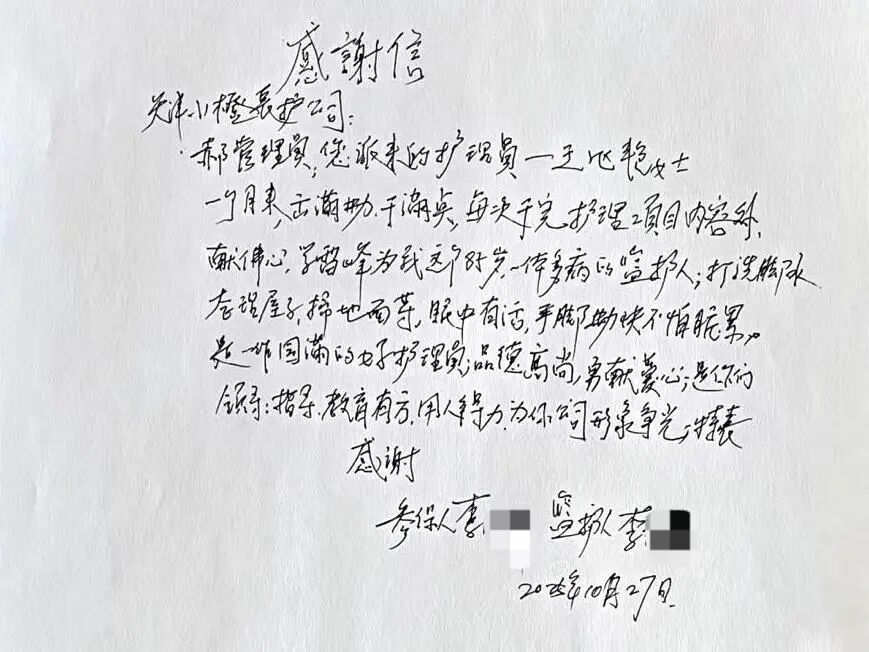 感謝信
天津小橙长护公司：
郝管理員，您派来的护理員一王 艳女士
一个月来，出满勤.干满点，每次干完护理項目内容外，
献佛心，学雷峰为我这个85岁.一体多病的监护人；打洗脚水
整理屋子，掃地面等，眼中有活，手脚勤快不怕脏累，
是一 圆满的好护理員；品德高尚，勇献爱心；是你们
领导：指导.教育有方.用人得力，为你公司形象争光；特表
感谢
参保人李 监护人李
10月27日